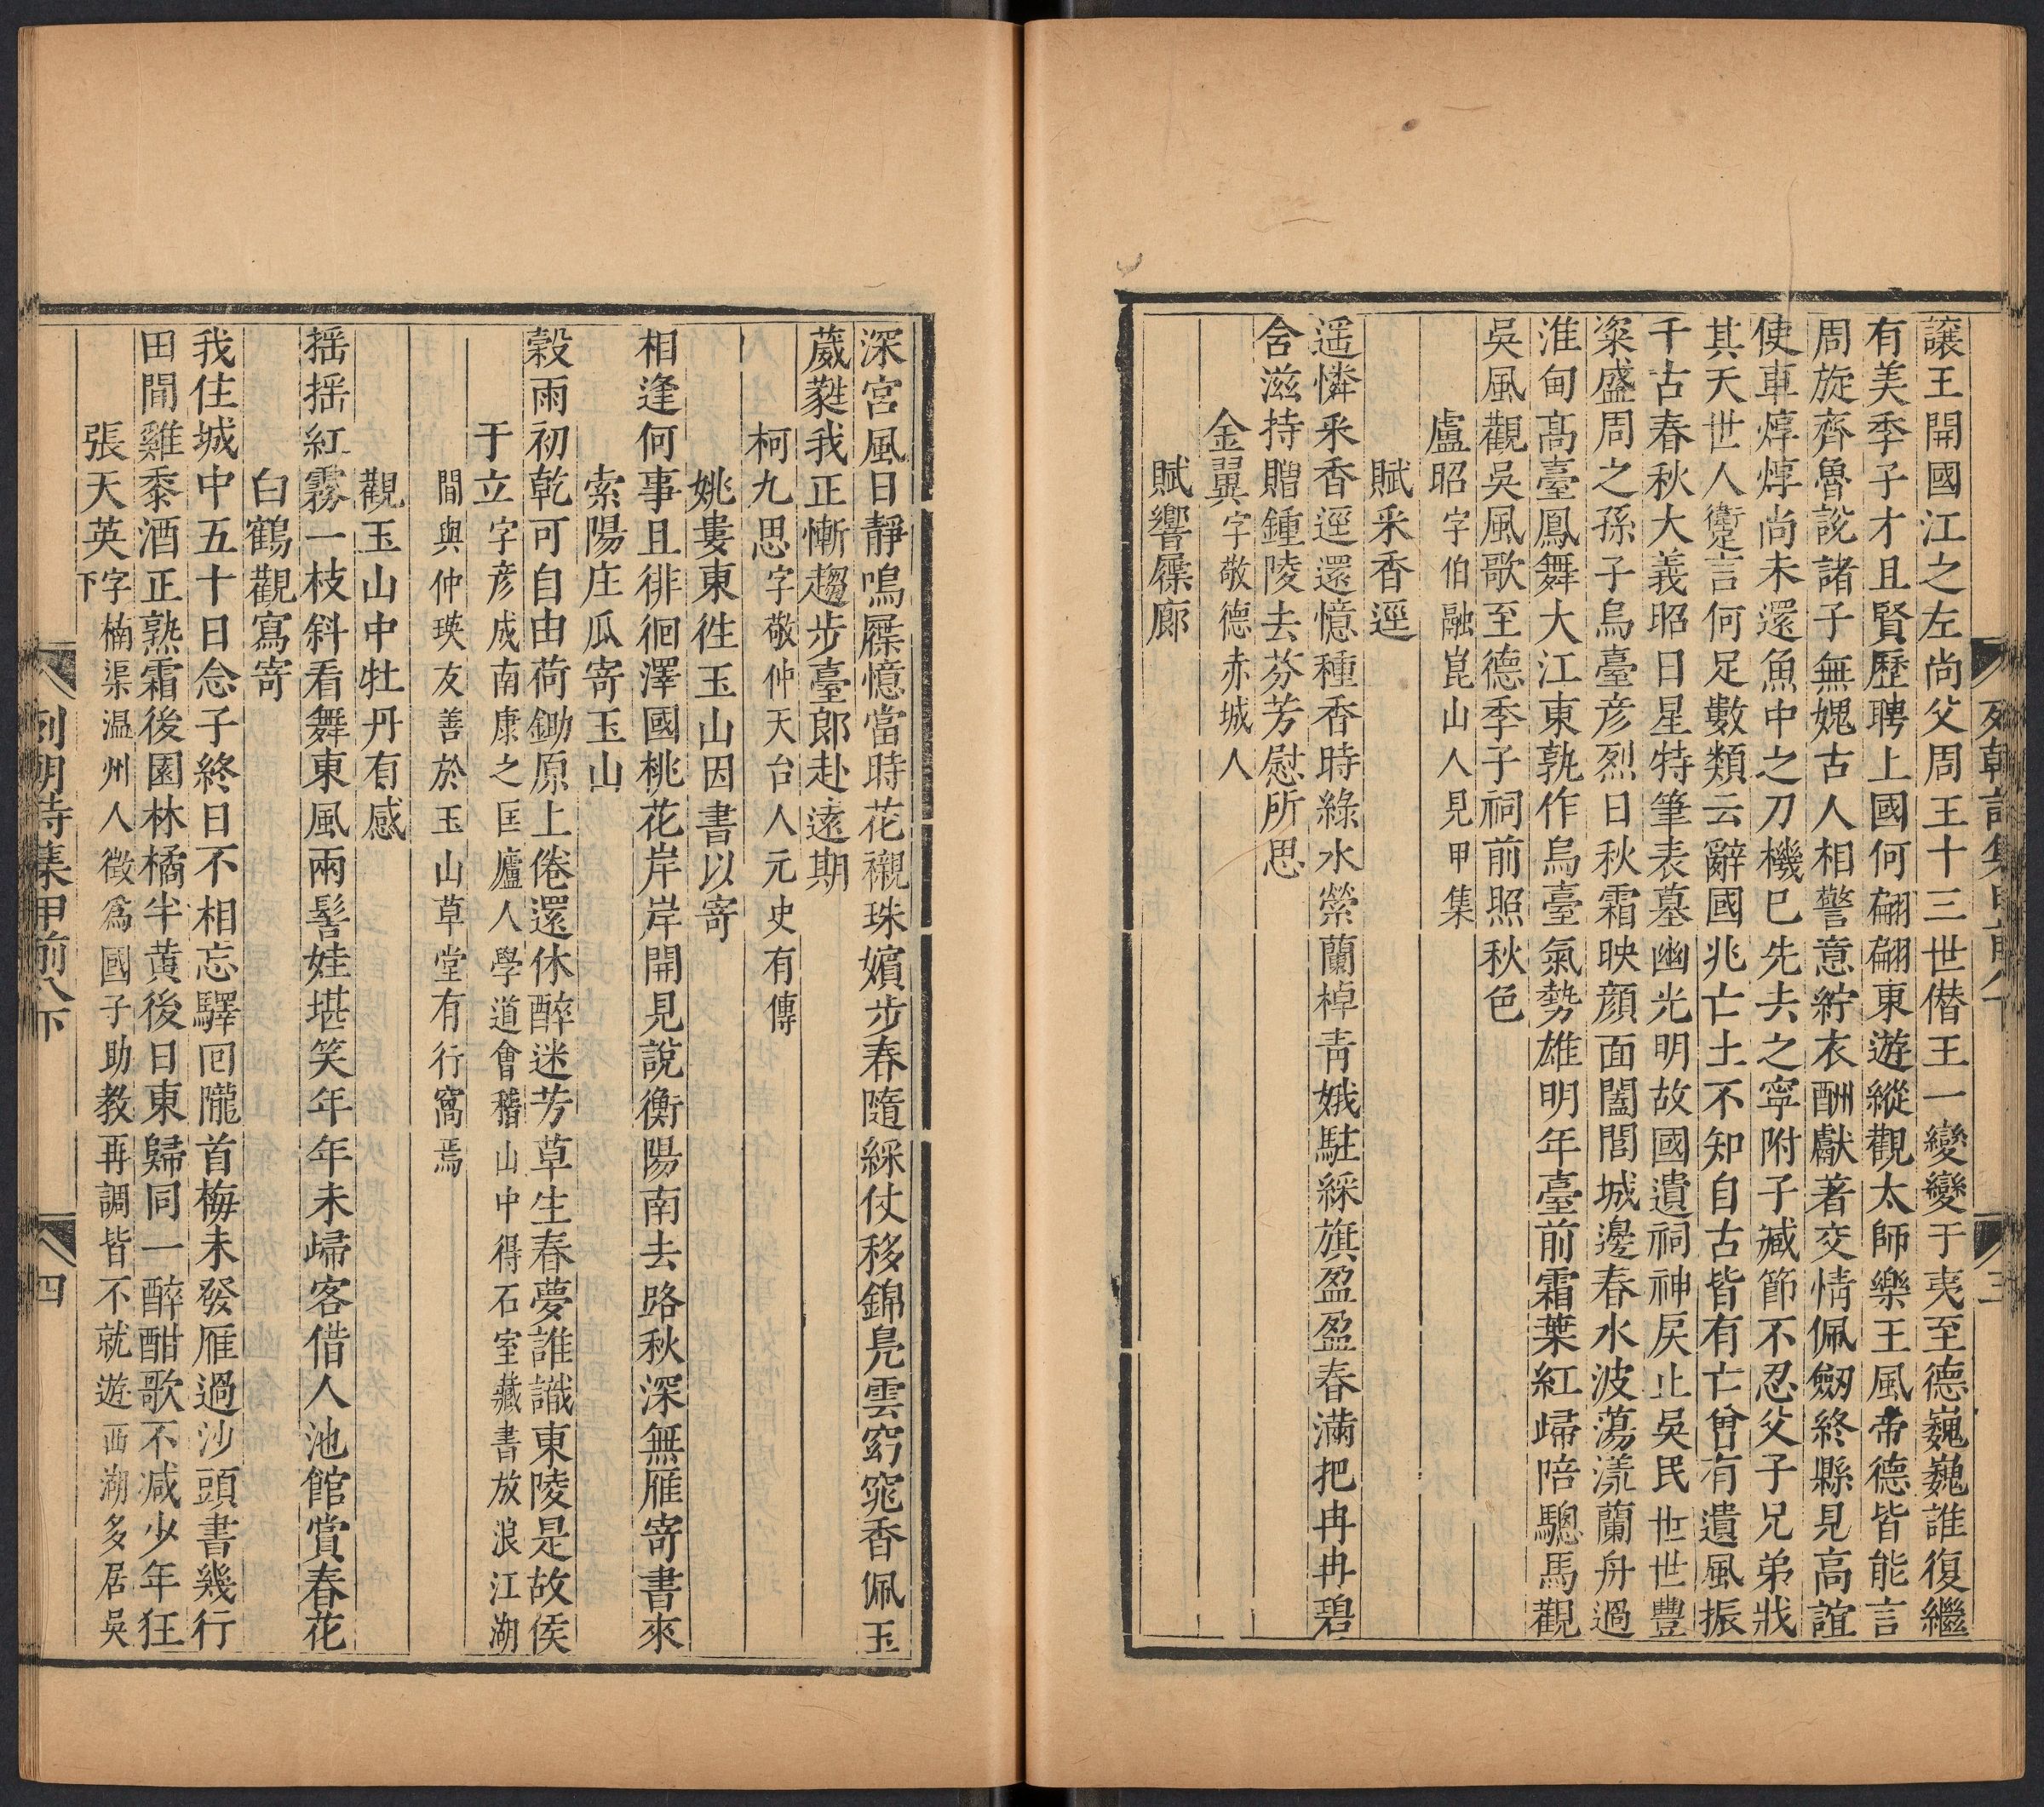 讓王開國江之左尚父周王十三世僣王一變變于夷至德巍巍誰復繼
有美季子才且賢歷聘上國何翩翩東遊縱觀太師樂王風帝德皆能言
周旋齊魯說諸子無媿古人相警意紵衣酬獻著交情佩劒終縣見高誼
使車焞焞尚未還魚中之刀機巳先去之寧附子臧節不忍父子兄弟戕
其天世人衞足言何足數類云辭國兆亡土不知自古皆有亡曾有遺風振
千古春秋大義昭日星特筆表墓幽光明故國遺祠神戾止吳民世世豐
粢盛周之孫子烏臺彥烈日秋霜映顏面闔閭城邊春水波蕩漾蘭舟過
淮甸高臺鳳舞大江東孰作烏臺氣勢雄明年臺前霜葉紅歸陪驄馬觀
吳風觀吳風歌至德季子祠前照秋色
盧昭字伯融崑山人見甲集
賦采香逕
遥憐采香逕還憶種香時綠水縈蘭棹靑娥駐綵旗盈盈春滿把冉冉碧
含滋持贈鍾陵去芬芳慰所思
金翼字敬德赤城人
賦響屧廊
列朝詩集甲前八下
三
深宮風日靜鳴屧憶當時花襯珠嬪步春隨綵仗移錦鳧雲窈窕香佩玉
葳蕤我正慚趨步臺郎赴遠期
柯九思字敬仲天台人元史有傳
姚婁東徃玉山因書以寄
相逢何事且徘徊澤國桃花岸岸開見說衡陽南去路秋深無雁寄書來
索陽庄瓜寄玉山
穀雨初乾可自由荷鋤原上倦還休醉迷芳草生春夢誰識東陵是故侯
于立字彥成南康之匡廬人學道會稽山中得石室藏書放浪江湖
間與仲瑛友善於玉山草堂有行窩焉
觀玉山中牡丹有感
揺揺紅霧一枝斜看舞東風兩髻娃堪笑年年未歸客借人池館賞春花
白鶴觀寫寄
我住城中五十日念子終日不相忘驛回隴首梅未發雁過沙頭書幾行
田間雞黍酒正熟霜後園林橘半黃後日東歸同一醉酣歌不减少年狂
張天英字楠渠温州人徵爲國子助教再調皆不就遊西湖多居吳
下
列朝詩集甲前八下
四